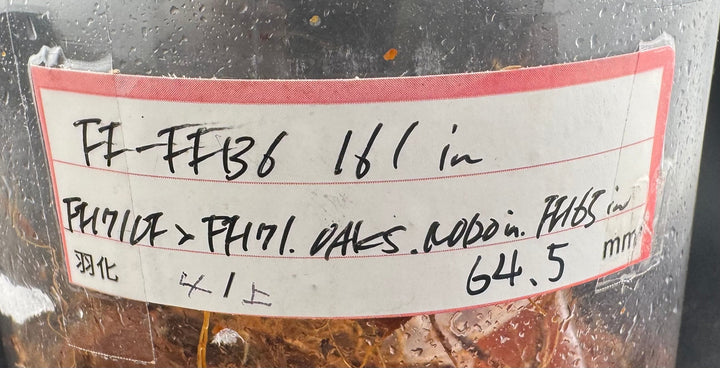 FF-FFB6 161 in
FH171DF > FH171. OAKS. RODO in. FH165 in
羽化 4/上 64.5 mm